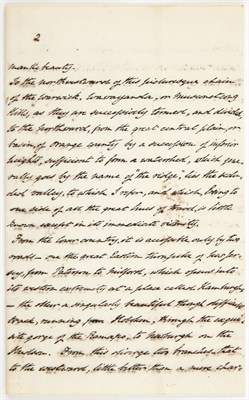 2
mantic beauty.
To the northwestward of this picturesque chain
of the Warwick, Wawayanda, or Musconetcong
Hills, as they are successively termed, and divided
to the northward, from the great central plain, or
basin of Orange county by a succession of inferior
heights, sufficient to form a watershed, which gen-
erally goes by the name of the ridge, lies the
valley, to which I refer, and which, lying to
one side of all the great lines of travel, is little
known except in its immediate vicinity.
From the lower country, it is accessible only by two
roads— one the great eastern turnpike of New Jer-
sey, from Paterson to Milford, which opens into
its western extremity at a place called Hamburgh,
— the other a singularly beautiful though
track, running from Hoboken, through the exqui-
site gorge of the Ramapo, to Newburgh on the
Hudson. From this diverge two branches, that
to the westward, little better than a mere char-